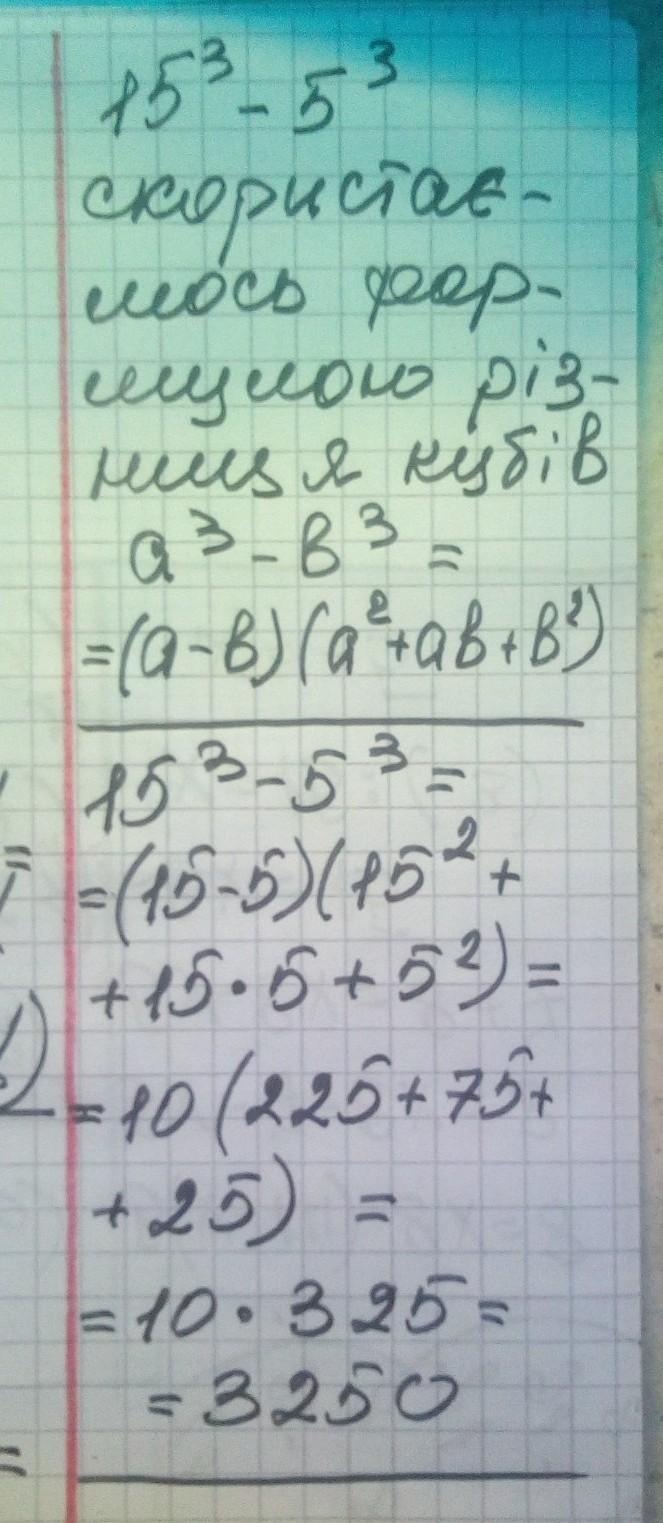 15³ - 5³
скористає-
мось фор-
мулою різ-
ниця кубів
a³ - b³ =
=(a-b)(a²+ab+b²)
15³ - 5³ =
=(15-5)(15² +
+15·5 + 5²) =
=10(225+75+
+25) =
=10·325=
=3250